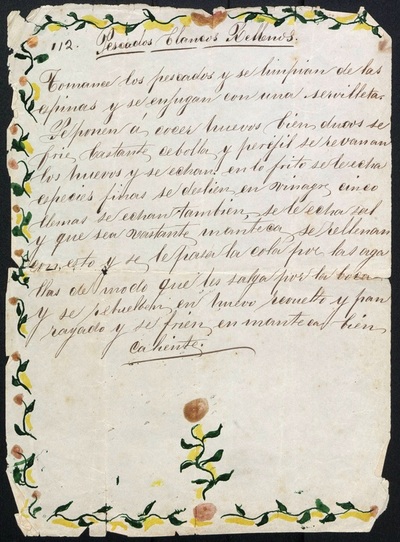 112. Pescados blancos Rellenos.
Tomance los pescados y se limpian de las
espinas y se enjugan con una servilleta.
Se ponen á cocer huevos bien duros se
frie bastante cebolla y perejil se revanan
los huevos y se echan en lo frito se le echa
especies finas se deslien en vinagre cinco
llemas se echan tambien, se le echa sal
y que sea bastante manteca, se rellenan
con esto y se le pasa la cola por las aga
llas de modo que les salga por la boca
y se rebuelben en huevo rebuelto y pan
rayado y se frien en manteca bien
caliente.